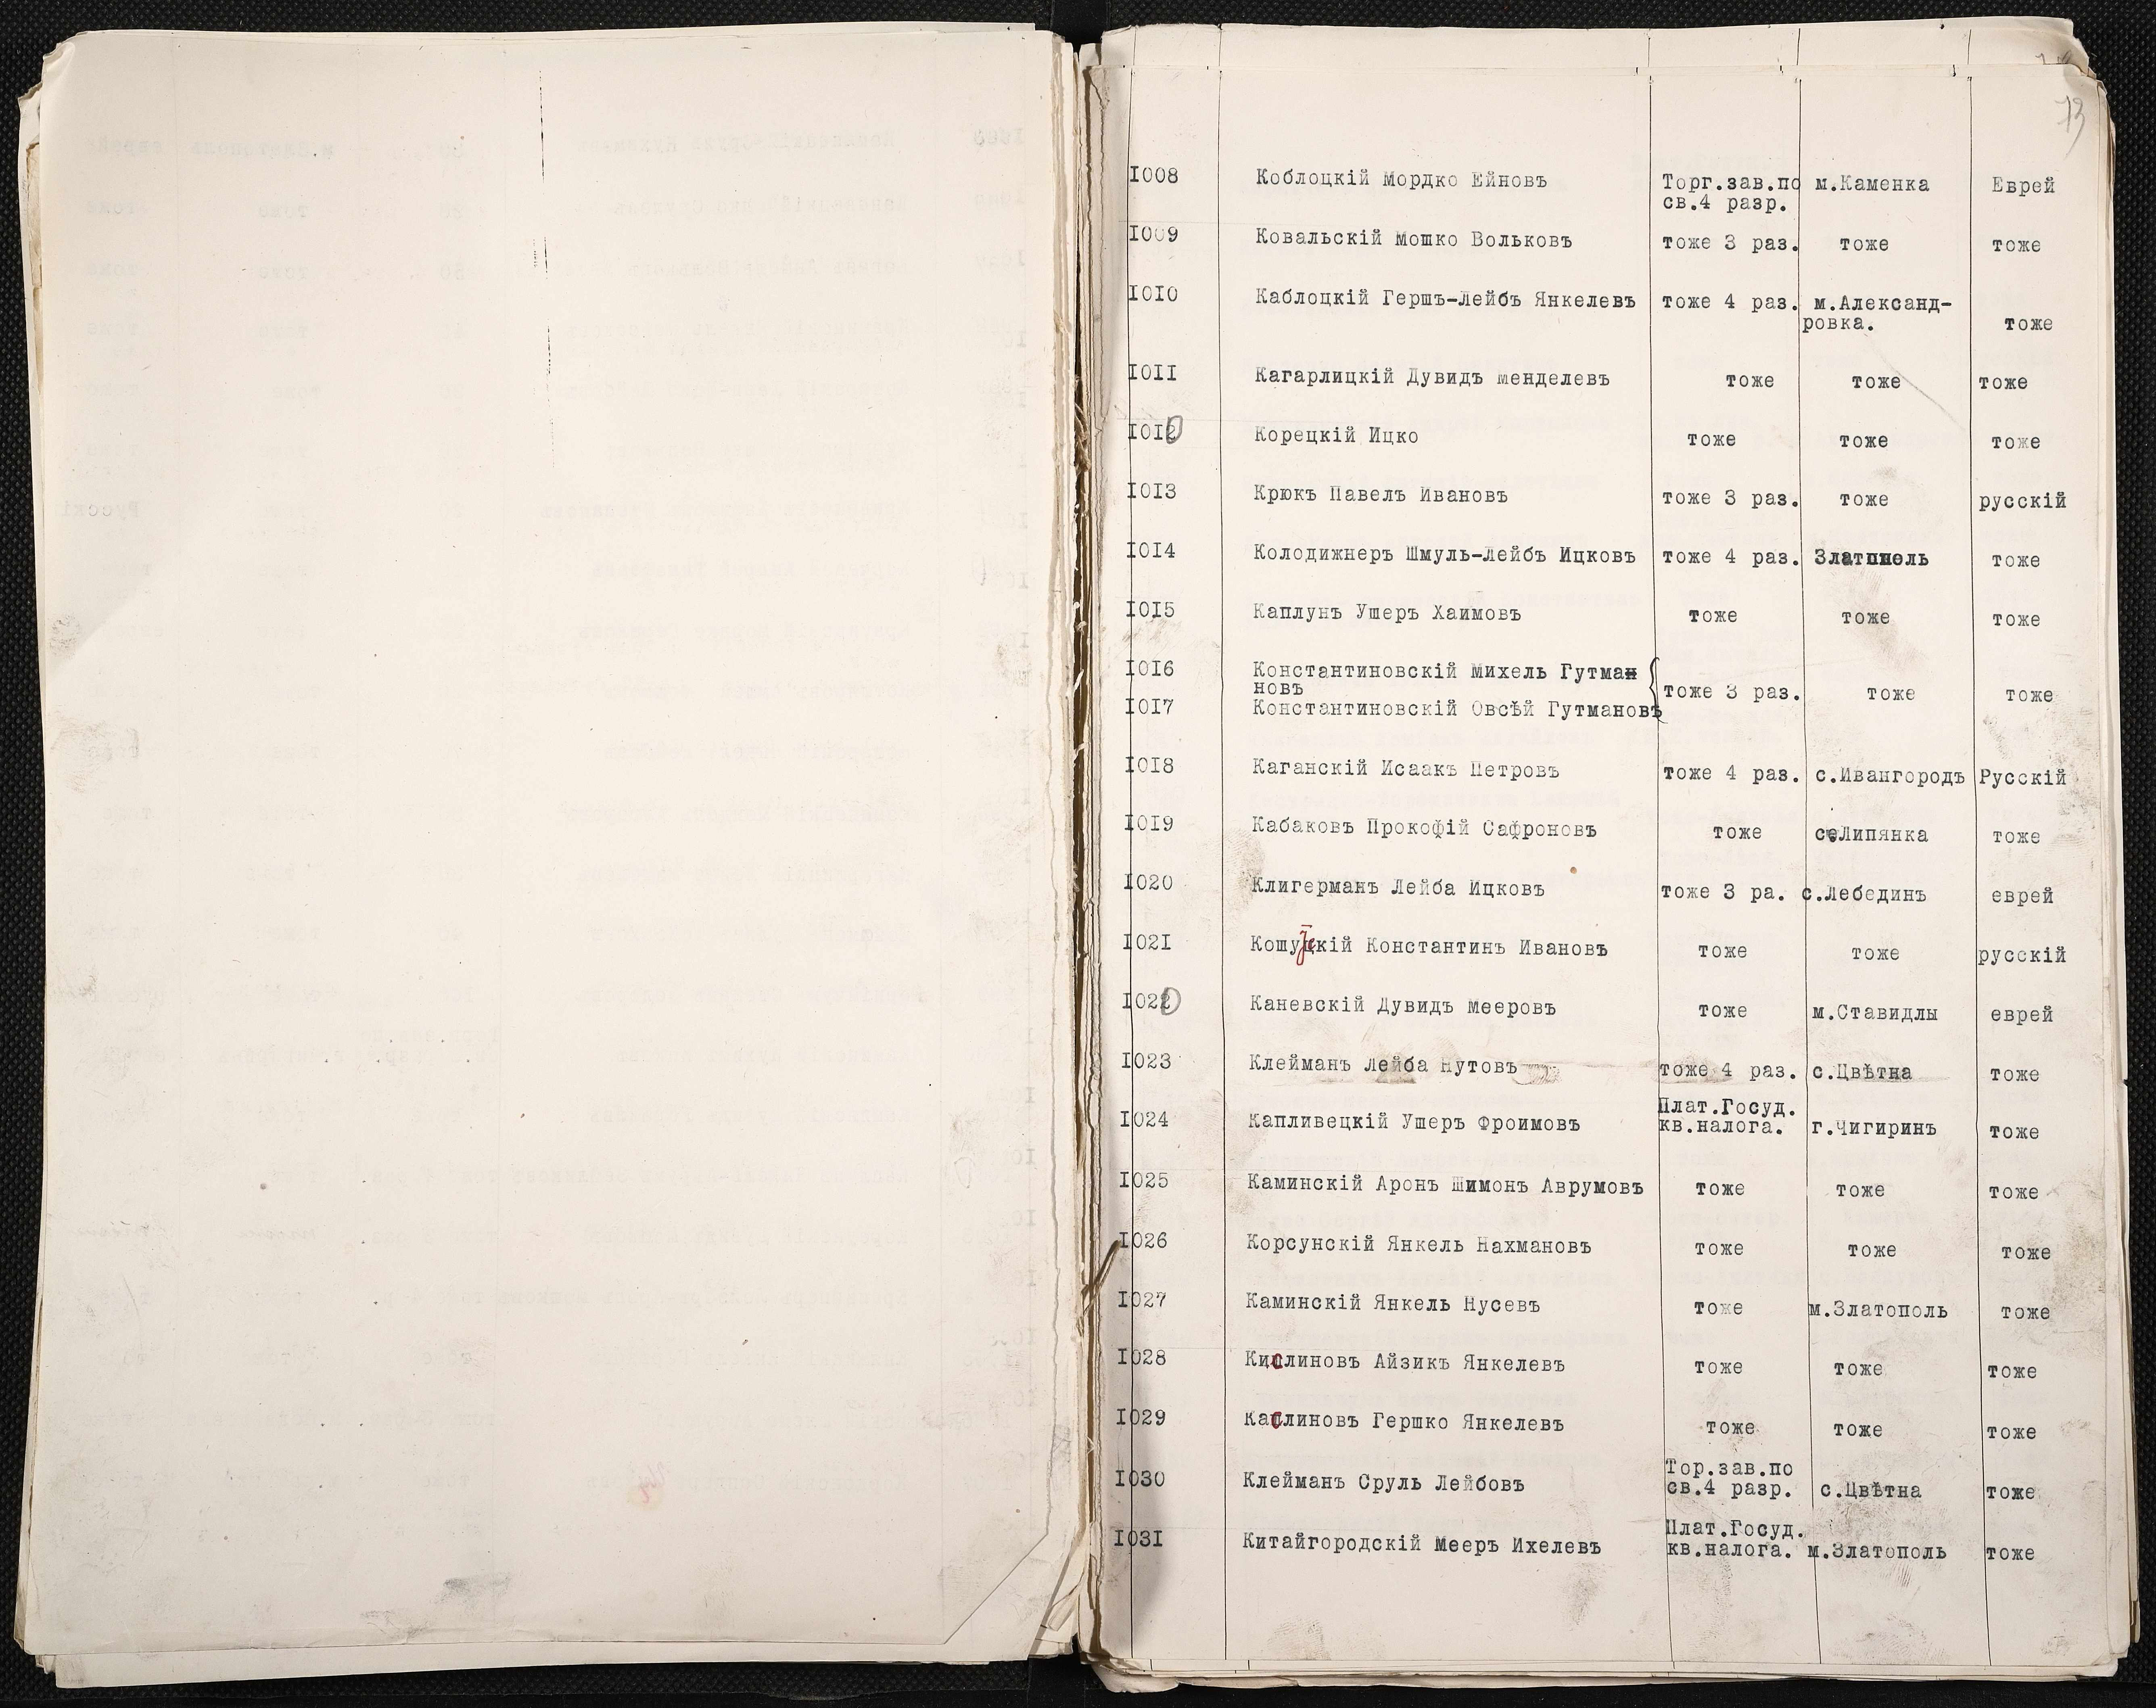 73
1008 Коблоцкій Мордко Ейновъ Торг.зав.по м.Каменка Еврей
св.4 разр.
1009 Ковальскій Мошко Вольковъ тоже 3 раз. тоже тоже
1010 Каблоцкій Гершъ-Лейбъ Янкелевъ тоже 4 раз. м.Александ-
ровка. тоже
1011 Кагарлицкій Дувидъ Менделевъ тоже тоже тоже
1012 Корецкій Ицко тоже тоже тоже
1013 Крюкъ Павелъ Ивановъ тоже 3 раз. тоже русскій
1014 Колодижнеръ Шмуль-Лейбъ Ицковъ тоже 4 раз. тоже
1015 Каплунъ Ушеръ Хаимовъ тоже тоже тоже
1016 Константиновскій Михель Гутма
новъ тоже 3 раз. тоже тоже
1017 Константиновскій Овсѣй Гутмановъ
1018 Каганскій Исаакъ Петровъ тоже 4 раз. с.Ивангородъ Русскій
1019 Кабаковъ Прокофій Сафроновъ тоже с.Липянка тоже
1020 Клигерманъ Лейба Ицковъ тоже 3 ра. с.Лебединъ еврей
1021 Кошуцкій Константинъ Ивановъ тоже тоже русскій
1022 Каневскій Дувидъ Мееровъ тоже м.Ставидлы еврей
1023 Клейманъ Лейба Нутовъ тоже 4 раз. с.Цвѣтна тоже
1024 Капливецкій Ушеръ Фроимовъ Плат.Госуд.
кв.налога. г.Чигиринъ тоже
1025 Каминскій Аронъ Шимонъ Аврумовъ тоже тоже тоже
1026 Корсунскій Янкель Нахмановъ тоже тоже тоже
1027 Каминскій Янкель Нусевъ тоже м.Златополь тоже
1028 Кислиновъ Айзикъ Янкелевъ тоже тоже тоже
1029 Каслиновъ Гершко Янкелевъ тоже тоже тоже
1030 Клейманъ Сруль Лейбовъ Тор.зав.по
св.4 разр. с.Цвѣтна тоже
1031 Китайгородскій Мееръ Ихелевъ Плат.Госуд.
кв.налога. м.Златополь тоже